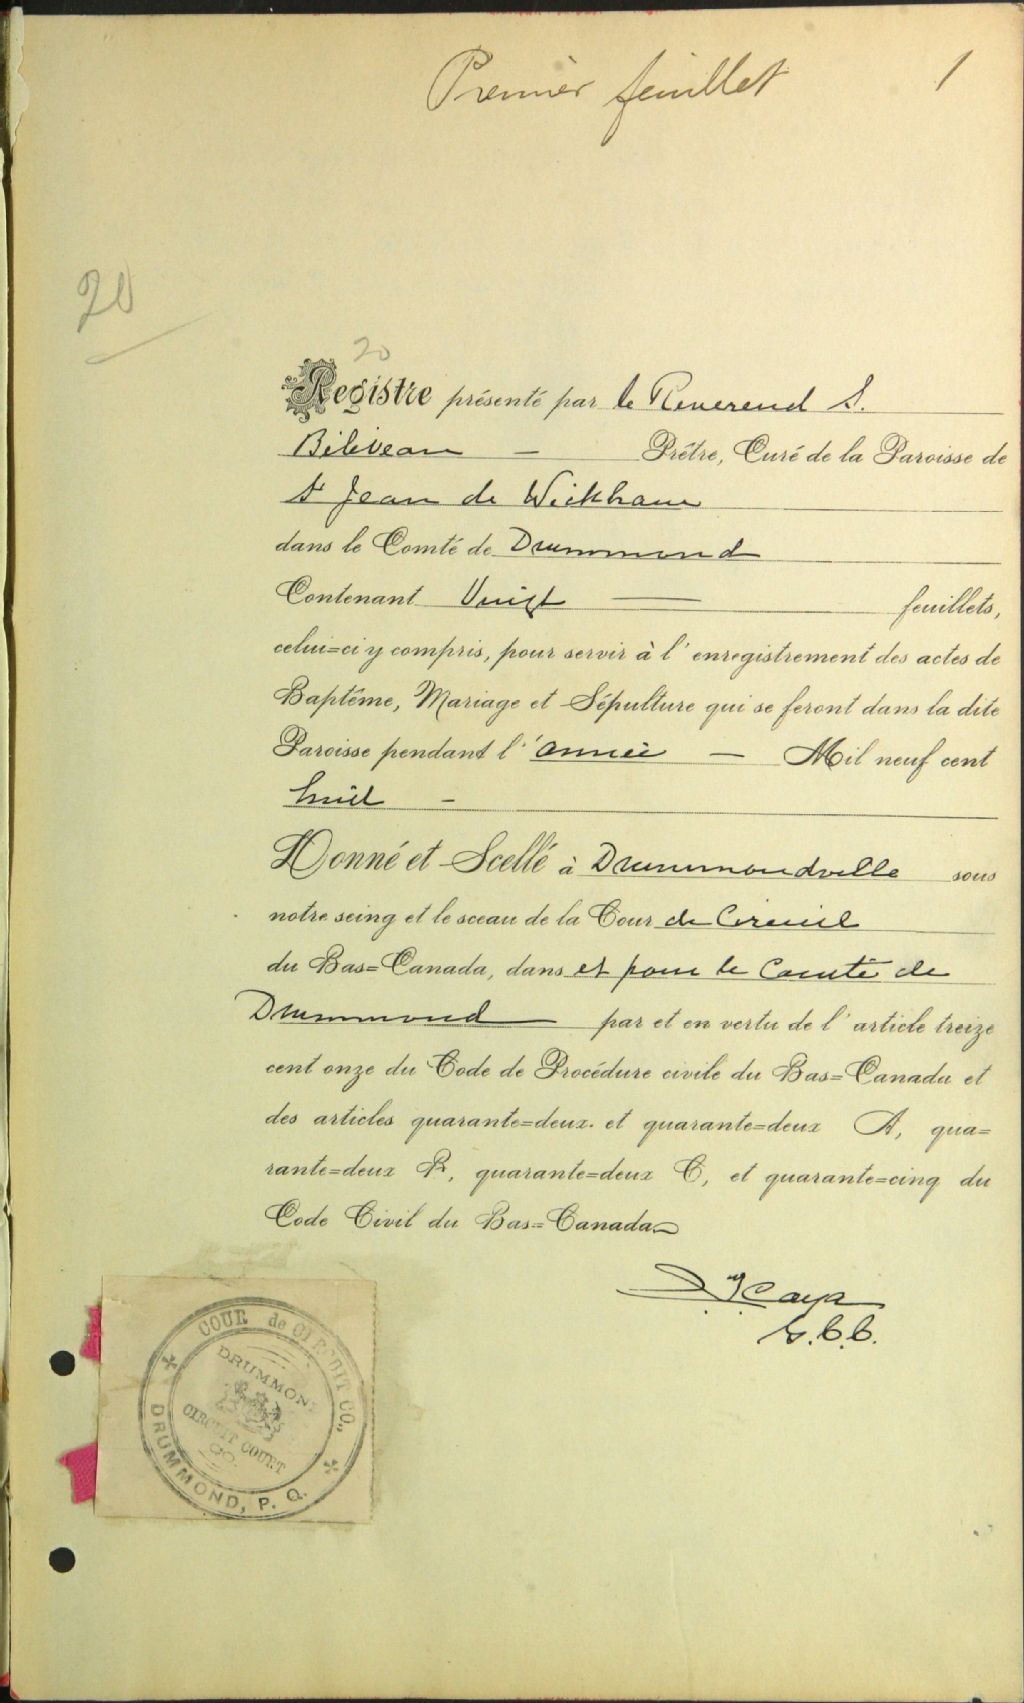 Premier feuillet
1
20
20
Registre présenté par le Reverend S.
Béliveau — Prêtre, Curé de la Paroisse de
St Jean de Wickham
dans le Comté de Drummond
Contenant Vingt — feuillets,
celui=ci y compris, pour servir à l'enregistrement des actes de
Baptême, Mariage et Sépulture qui se feront dans la dite
Paroisse pendant l'année — Mil neuf cent
huit —
Donné et Scellé à Drummondville sous
notre seing et le sceau de la Cour de Circuit
du Bas=Canada, dans et pour le Comté de
Drummond par et en vertu de l'article treize
cent onze du Code de Procédure civile du Bas=Canada et
des articles quarante=deux et quarante=deux A, qua=
rante=deux B, quarante=deux C, et quarante=cinq du
Code Civil du Bas=Canada
Caya
G.C.C.
COUR de CIRCUIT CO.,
DRUMMOND, P. Q.
DRUMMOND
CIRCUIT COURT
CO.